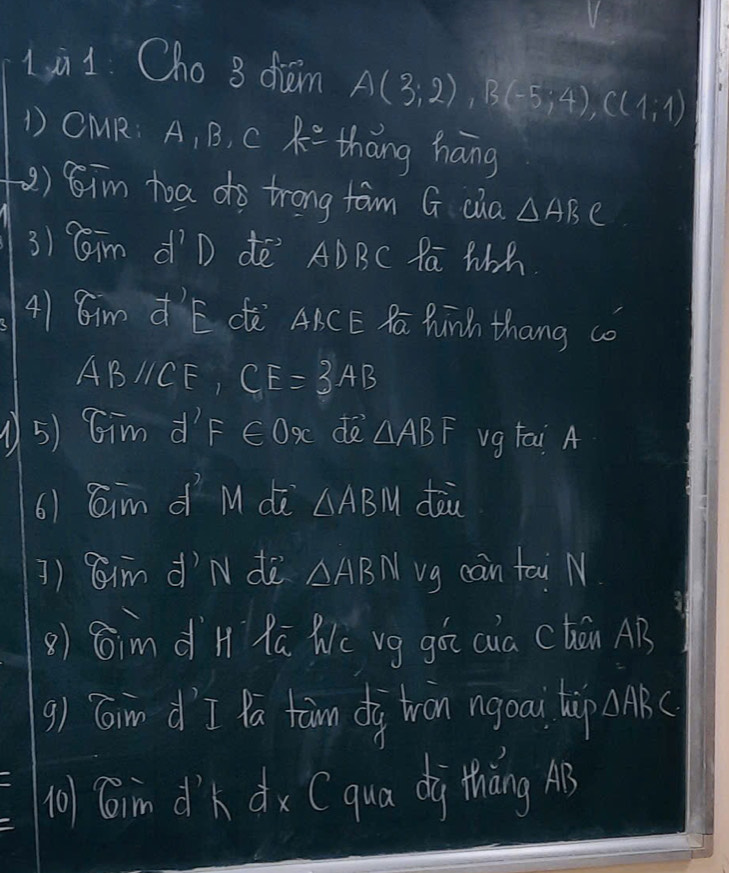 1: Cho 3 điểm A(3;2), B(-5;4), C(1;1)
1) CMR: A, B, C k° thẳng hàng
2) Tìm tọa độ trọng tâm G của △ABC
3) Tìm đ' D để ADBC là hbh.
4) Tìm đ' E để ABCE là hình thang có
AB//CE, CE=3AB
5) Tìm đ' F ∈ Ox để △ABF vg tại A
6) Tìm đ' M để △ABM đều
7) Tìm đ' N để △ABN vg cân tại N
8) Tìm đ' H là h/c vg góc của C trên AB
9) Tìm đ' I là tâm đg tròn ngoại tiếp △ABC.
10) Tìm đ' K đx C qua đg thẳng AB